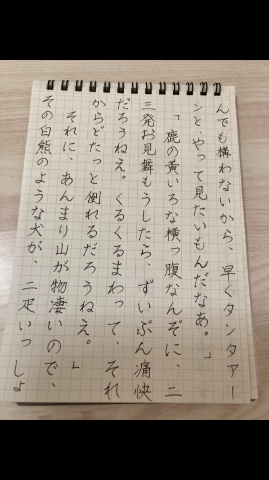 んでも構わないから、早くタンタアー
ンと、やって見たいもんだなあ。」
「鹿の黄いろな横っ腹なんぞに、二
三発お見舞もうしたら、ずいぶん痛快
だろうねえ。くるくるまわって、それ
からどたっと倒れるだろうねえ。」
それに、あんまり山が物凄いので、
その白熊のような犬が、二疋いっしょ